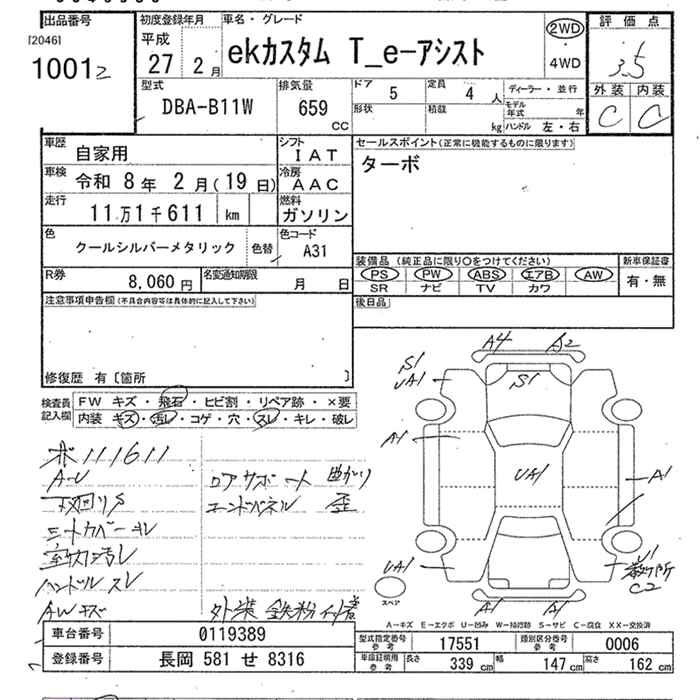 出品番号
[2046]
10012
初度登録年月
平成
27 2月
車名・グレード
ekカスタム T_e-アシスト
2WD
・
4WD
評価点
3.5
外装 内装
C C
型式
DBA-B11W
排気量
659
CC
ドア 5
定員 4人
形状
積載 kg
ディーラー・並行
モデル年式 年
ハンドル 左・右
車歴 自家用
シフト IAT
車検 令和 8年 2月(19日)
冷房 AAC
走行 11万1千611 km
燃料 ガソリン
色 クールシルバーメタリック
色替
色コード A31
R券 8,060円
名変通知期限 月 日
セールスポイント(正常に機能するものに限ります)
ターボ
装備品(純正品に限り○をつけてください)
PS PW ABS エアB AW
SR ナビ TV カワ
新車保証書
有・無
後日品
注意事項申告欄(不具合内容等は具体的に記入して下さい)
修復歴 有〔箇所 〕
検査員記入欄
FW キズ・飛石・ヒビ割・リペア跡・×要
内装 キズ・汚レ・コゲ・穴・スレ・キレ・破レ
ボ111611
下廻りS
シートカバーキレ
室内汚レ
ハンドルスレ
AWキズ
ロアサポート 曲がり
エンドパネル 歪
外装 鉄粉付着
A4 A2
S1
UA1
S1
A1
UA1
A1
UA1
U1
C2
A1 A1
スペア
A-キズ E-エクボ U-凹み W-補修跡 S-サビ C-腐食 XX-交換済
車台番号 0119389
登録番号 長岡 581 せ 8316
型式指定番号 参考 17551
類別区分番号 参考 0006
車庫証明用 参考
長さ 339 cm
幅 147 cm
高さ 162 cm